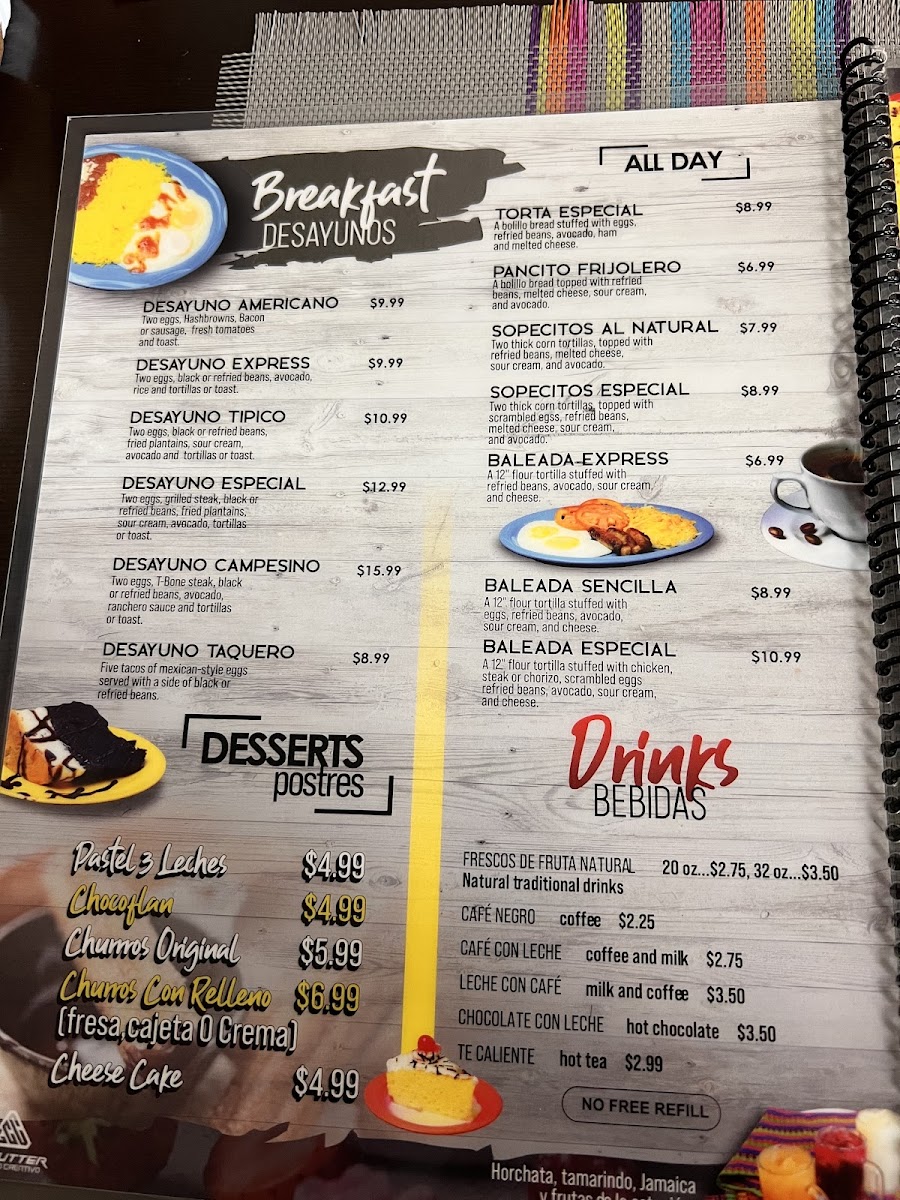 Breakfast
DESAYUNOS
DESAYUNO AMERICANO $9.99
Two eggs, Hashbrowns, Bacon
or sausage, fresh tomatoes
and toast.
DESAYUNO EXPRESS $9.99
Two eggs, black or refried beans, avocado,
rice and tortillas or toast.
DESAYUNO TIPICO $10.99
Two eggs, black or refried beans,
fried plantains, sour cream,
avocado and tortillas or toast.
DESAYUNO ESPECIAL $12.99
Two eggs, grilled steak, black or
refried beans, fried plantains,
sour cream, avocado, tortillas
or toast.
DESAYUNO CAMPESINO $15.99
Two eggs, T-Bone steak, black
or refried beans, avocado,
ranchero sauce and tortillas
or toast.
DESAYUNO TAQUERO $8.99
Five tacos of mexican-style eggs
served with a side of black or
refried beans.
ALL DAY
TORTA ESPECIAL $8.99
A bolillo bread stuffed with eggs,
refried beans, avocado, ham
and melted cheese.
PANCITO FRIJOLERO $6.99
A bolillo bread topped with refried
beans, melted cheese, sour cream,
and avocado.
SOPECITOS AL NATURAL $7.99
Two thick corn tortillas, topped with
refried beans, melted cheese,
sour cream, and avocado.
SOPECITOS ESPECIAL $8.99
Two thick corn tortillas, topped with
scrambled egss, refried beans,
melted cheese, sour cream,
and avocado.
BALEADA EXPRESS $6.99
A 12" flour tortilla stuffed with
refried beans, avocado, sour cream,
and cheese.
BALEADA SENCILLA $8.99
A 12" flour tortilla stuffed with
eggs, refried beans, avocado,
sour cream, and cheese.
BALEADA ESPECIAL $10.99
A 12" flour tortilla stuffed with chicken,
steak or chorizo, scrambled eggs
refried beans, avocado, sour cream,
and cheese.
DESSERTS
postres
Pastel 3 Leches $4.99
Chocoflan $4.99
Churros Original $5.99
Churros Con Relleno $6.99
(fresa,cajeta O Crema)
Cheese Cake $4.99
Drinks
BEBIDAS
FRESCOS DE FRUTA NATURAL 20 oz...$2.75, 32 oz...$3.50
Natural traditional drinks
CAFÉ NEGRO coffee $2.25
CAFÉ CON LECHE coffee and milk $2.75
LECHE CON CAFÉ milk and coffee $3.50
CHOCOLATE CON LECHE hot chocolate $3.50
TE CALIENTE hot tea $2.99
NO FREE REFILL
Horchata, tamarindo, Jamaica
y frutas de la